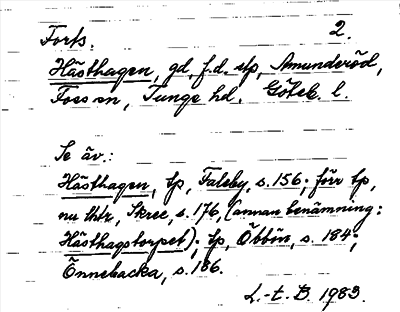 Forts. 2.
Hästhagen, gd, f.d. stp, Amunderöd,
Foss sn, Tunge hd. Göteb. l.
Se äv.:
Hästhagen, tp, Faleby, s. 156; förr tp,
nu lht, Skree, s. 176, (annan benämning:
Hästhagstorpet); tp, Öbbön, s. 184;
Önnebacka, s. 186.
L.-t. B. 1983.